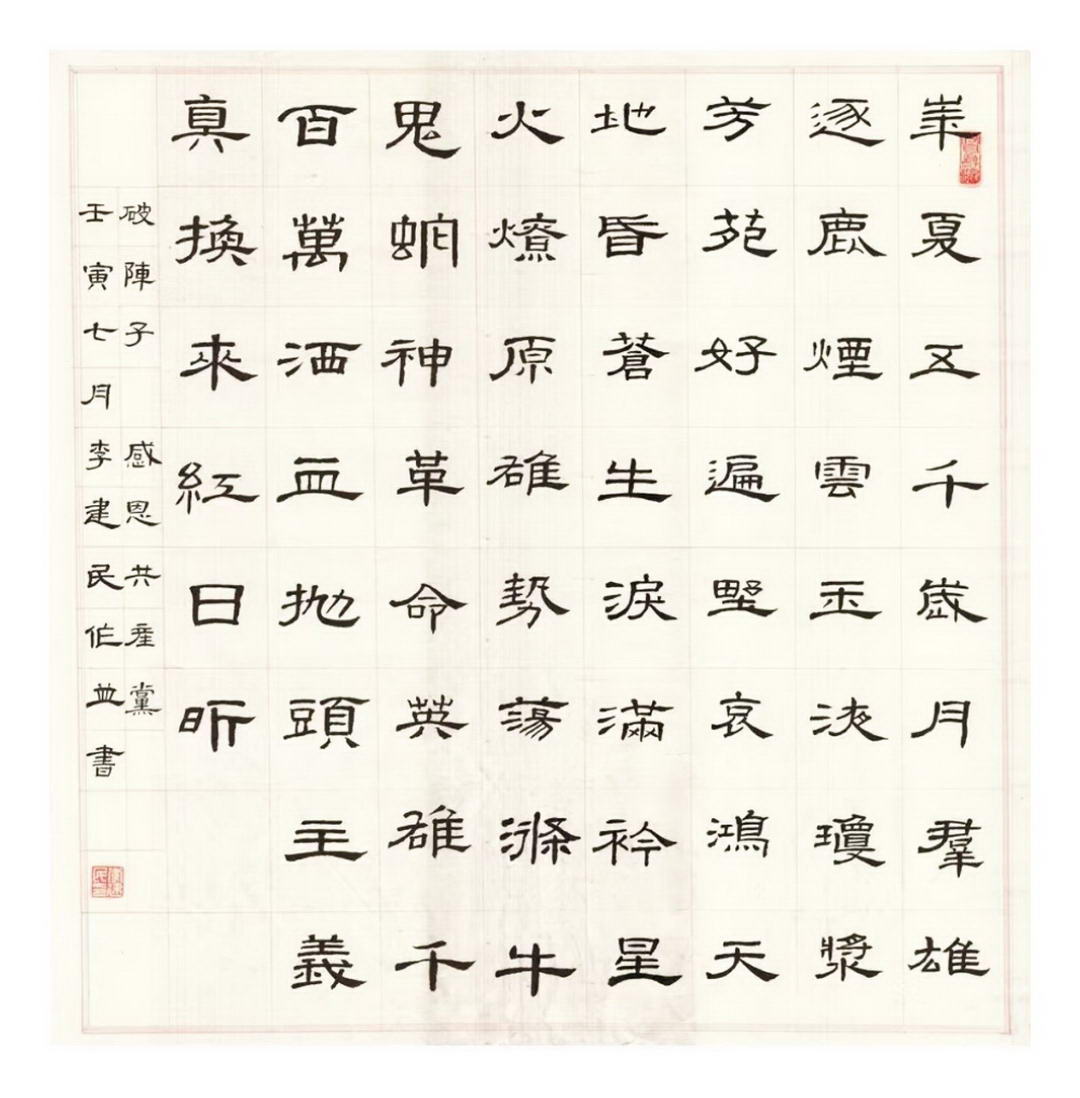 華夏五千歲月羣雄
逐鹿煙雲玉液瓊漿
芳苑好遍野哀鴻天
地昏蒼生淚滿衿星
火燎原雄勢蕩滌牛
鬼蛇神革命英雄千
百萬洒血抛頭主義
真換來紅日昕
破陣子 感恩共産黨
壬寅七月李建民作並書